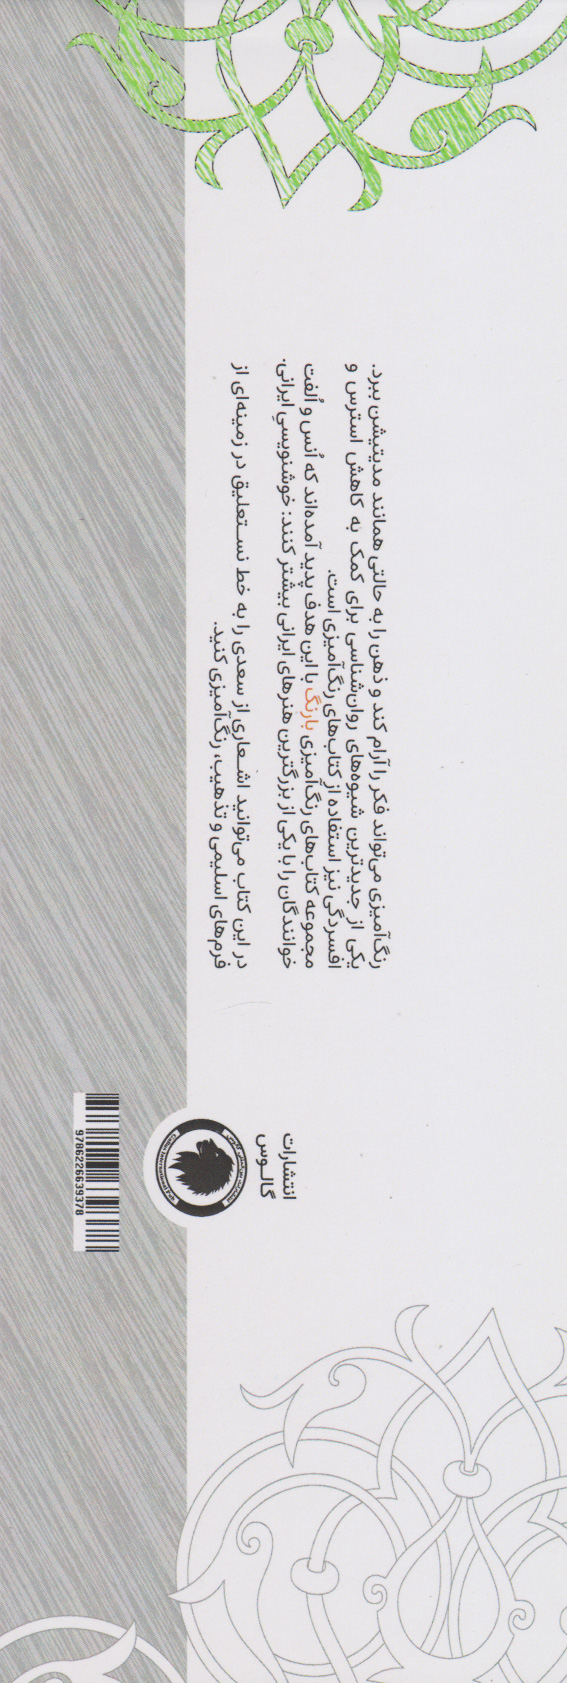 رنگ‌آمیزی می‌تواند فکر را آرام کند و ذهن را به حالتی همانند مدیتیشن ببرد.
یکی از جدیدترین شیوه‌های روان‌شناسی برای کمک به کاهش استرس و
افسردگی نیز استفاده از کتاب‌های رنگ‌آمیزی است.
مجموعه کتاب‌های رنگ‌آمیزی بارنگ با این هدف پدید آمده‌اند که اُنس و اُلفت
خوانندگان را با یکی از بزرگترین هنرهای ایرانی بیشتر کنند: خوشنویسیِ ایرانی.
در این کتاب می‌توانید اشعاری از سعدی را به خط نستعلیق در زمینه‌ای از
فرم‌های اسلیمی و تذهیب، رنگ‌آمیزی کنید.
انتشارات
گالوس
9786226639378